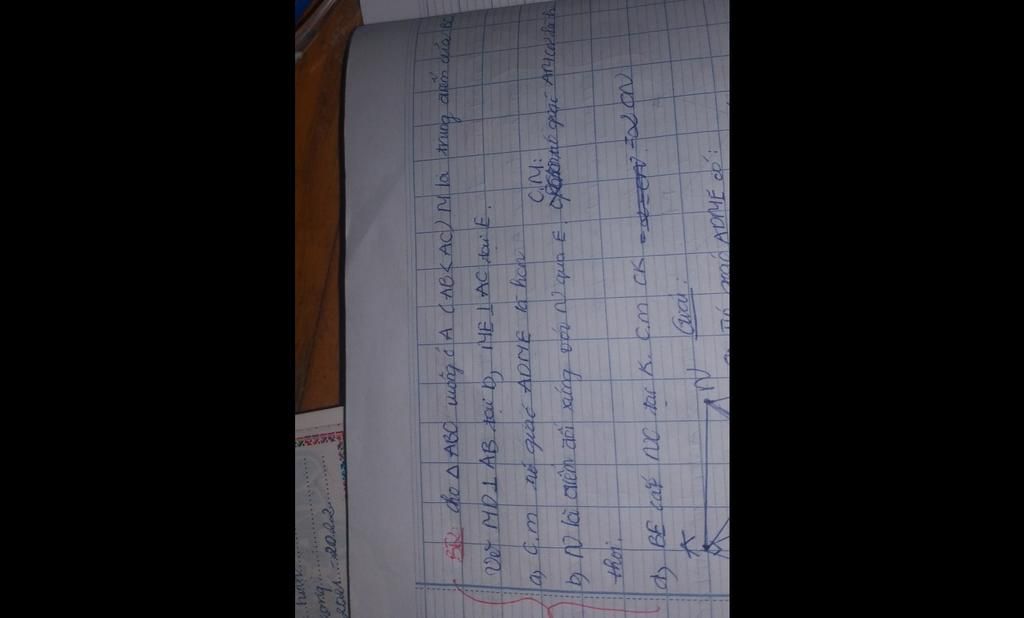 BR: cho Δ ABC vuông ở A (AB < AC) M là trung điểm của BC
Vẽ MD ⊥ AB tại D, ME ⊥ AC tại E.
a) C.m tứ giác ADME là hcn
b) N là điểm đối xứng với M qua E. C.M: tứ giác AMCN là h
thoi.
d) BE cắt NC tại K. C.m CK = 2 CN
Giải:
N
K
a, giác ADME có:
2022